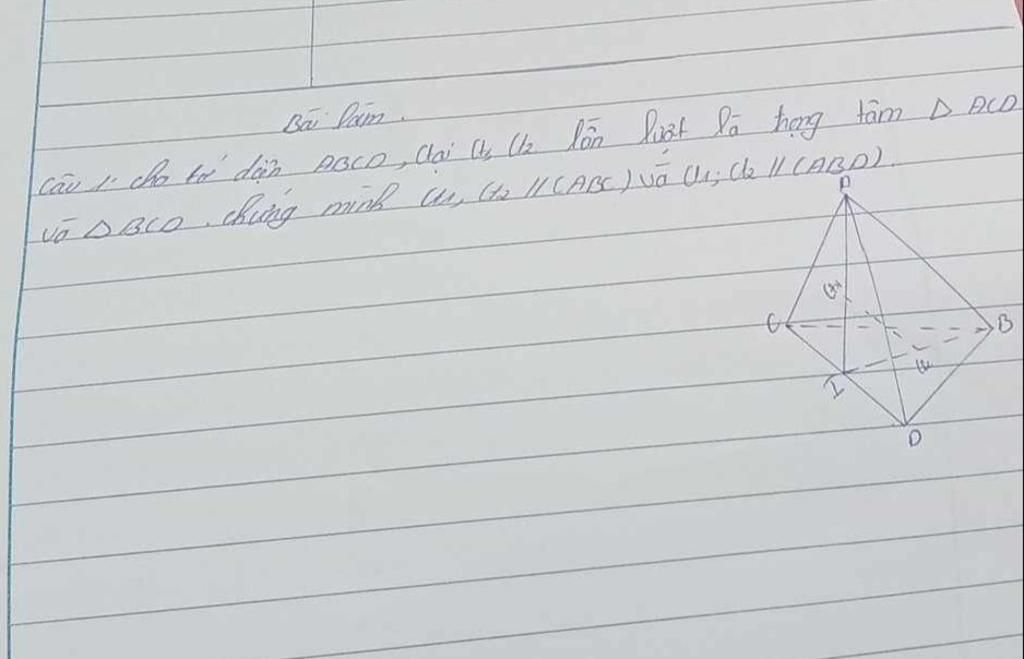 Bài làm.
Câu 1: cho tứ diện ABCD, Gọi G1, G2 lần lượt là trọng tâm Δ ACD
và Δ BCD. chứng minh G1, G2 // (ABC) và G1; G2 // (ABD).
A
G1
C
B
G2
I
D